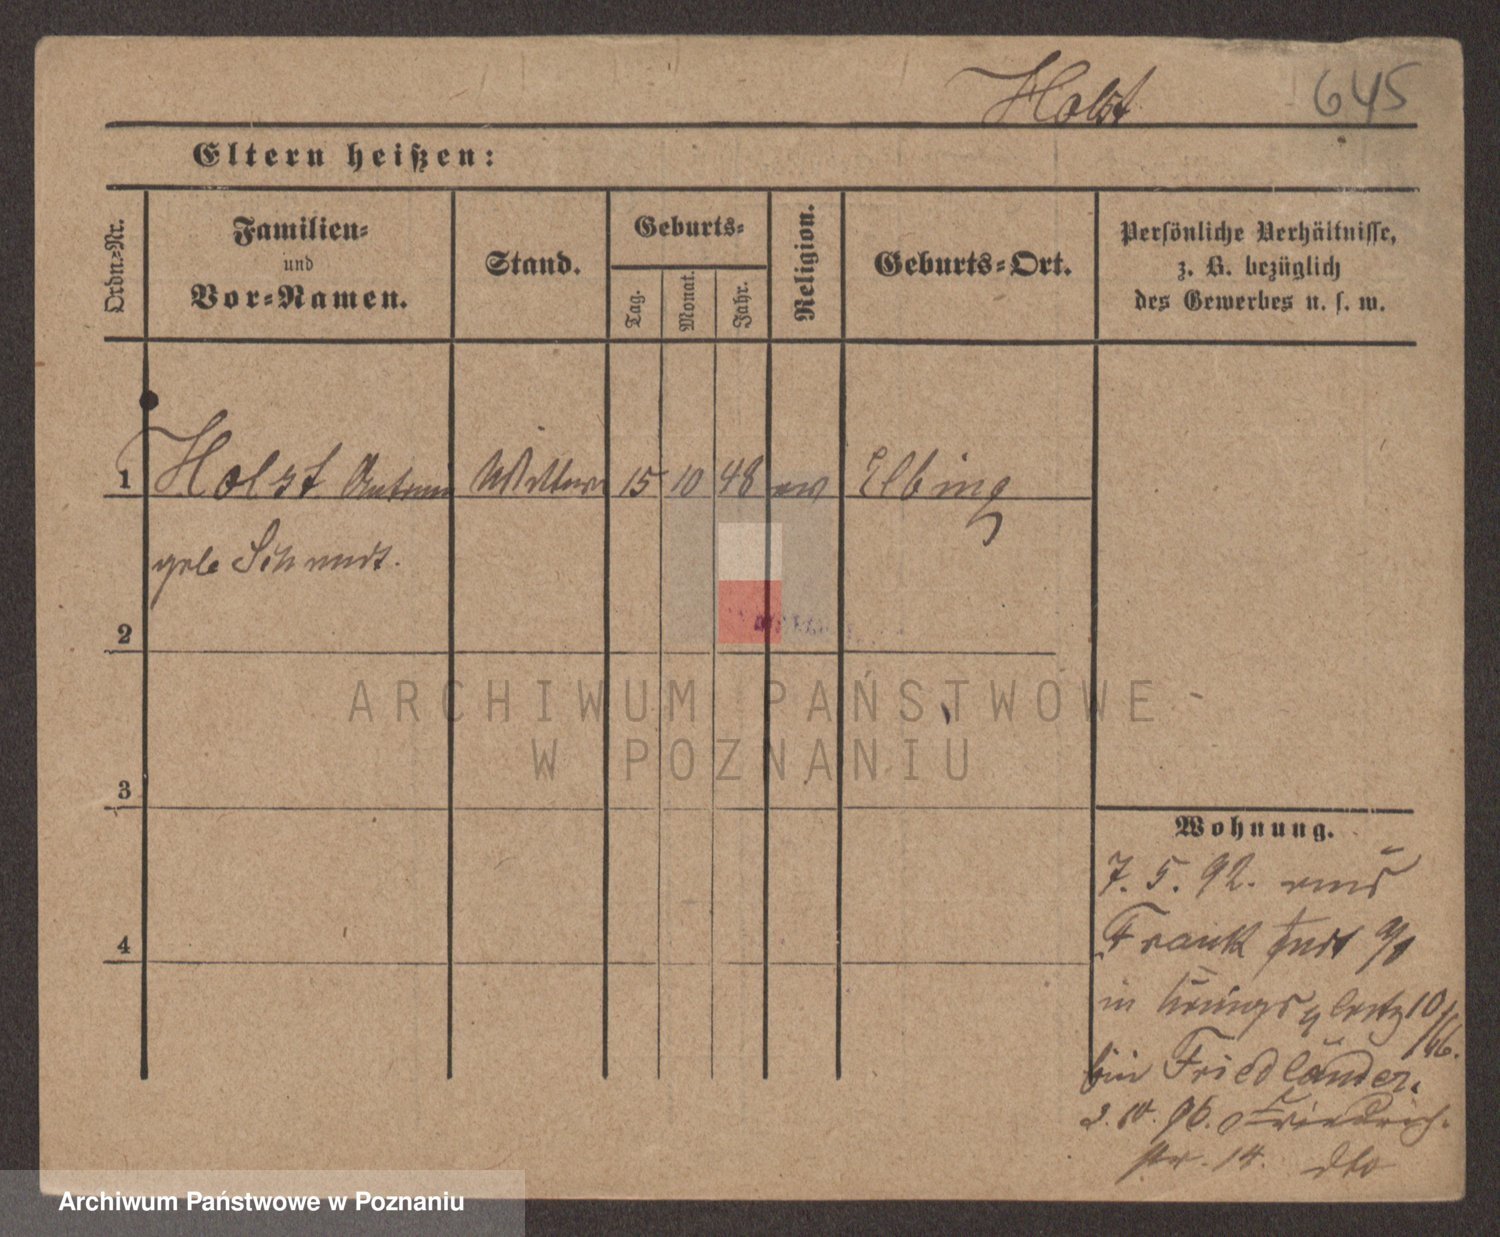 Holst 645
Eltern heißen:
Ordn.-Nr.
Familien-
und
Vor-Namen.
Stand.
Geburts-
Tag.
Monat.
Jahr.
Religion.
Geburts-Ort.
Persönliche Verhältnisse,
z. B. bezüglich
des Gewerbes u. s. w.
1 Holst 15 10 48 ev Elbing
geb Schmidt.
2
3
4
Wohnung.
7. 5. 92. aus
Frankfurt a/o
in Königsplatz 10
bei Friedländer.
2. 10. 96. Friedrich-
str. 14. dto
ARCHIWUM PAŃSTWOWE
W POZNANIU
Archiwum Państwowe w Poznaniu